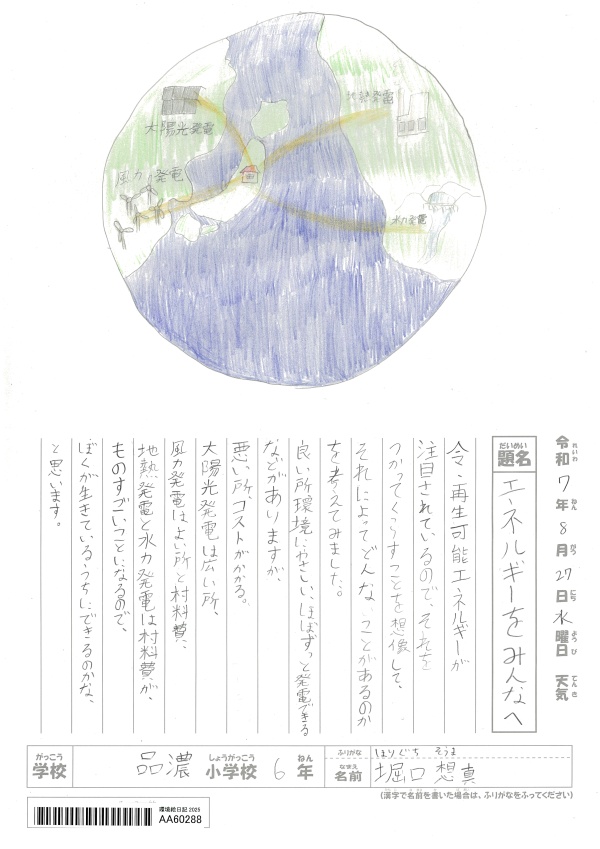 太陽光発電
地熱発電
風力発電
水力発電
令和7年8月27日水曜日 天気
れいわ ねん がつ にち ようび てんき
だいめい
題名
エネルギーをみんなへ
今、再生可能エネルギーが
注目されているので、それを
つかってくらすことを想像して、
それによってどんなことがあるのか
を考えてみました。
良い所環境にやさしい、ほぼずっと発電できる
などがありますが、
悪い所コストがかかる。
太陽光発電は広い所、
風力発電はよい所と材料費、
地熱発電と水力発電は材料費が、
ものすごいことになるので、
ぼくが生きているうちにできるのかな、
と思います。
がっこう しょうがっこう ねん
学校 品濃 小学校 6 年
ふりがな ほりぐち そうま
なまえ
名前 堀口 想真
(漢字で名前を書いた場合は、ふりがなをふってください)
環境絵日記 2025
AA60288